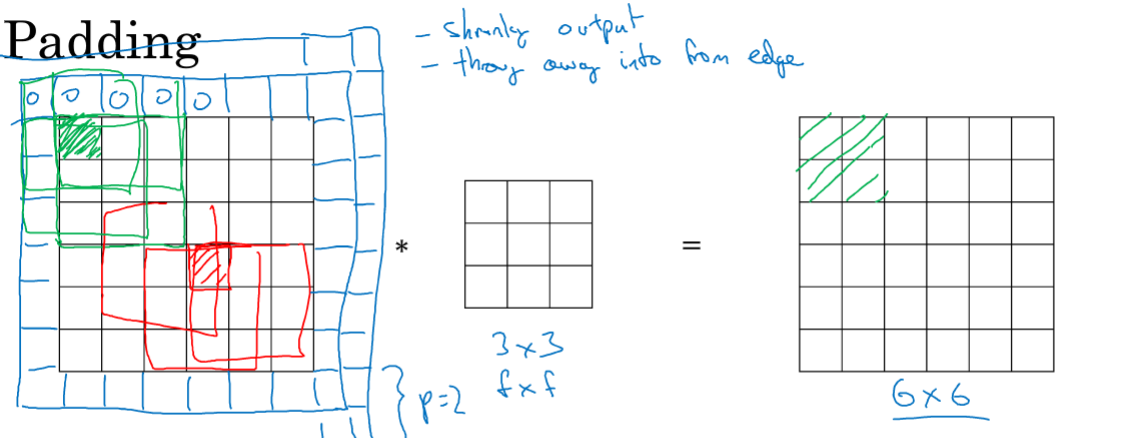 Padding
- shrinky output
- throw away info from edge
0 0 0 0 0
*
=
3×3
f×f
p=2
6×6